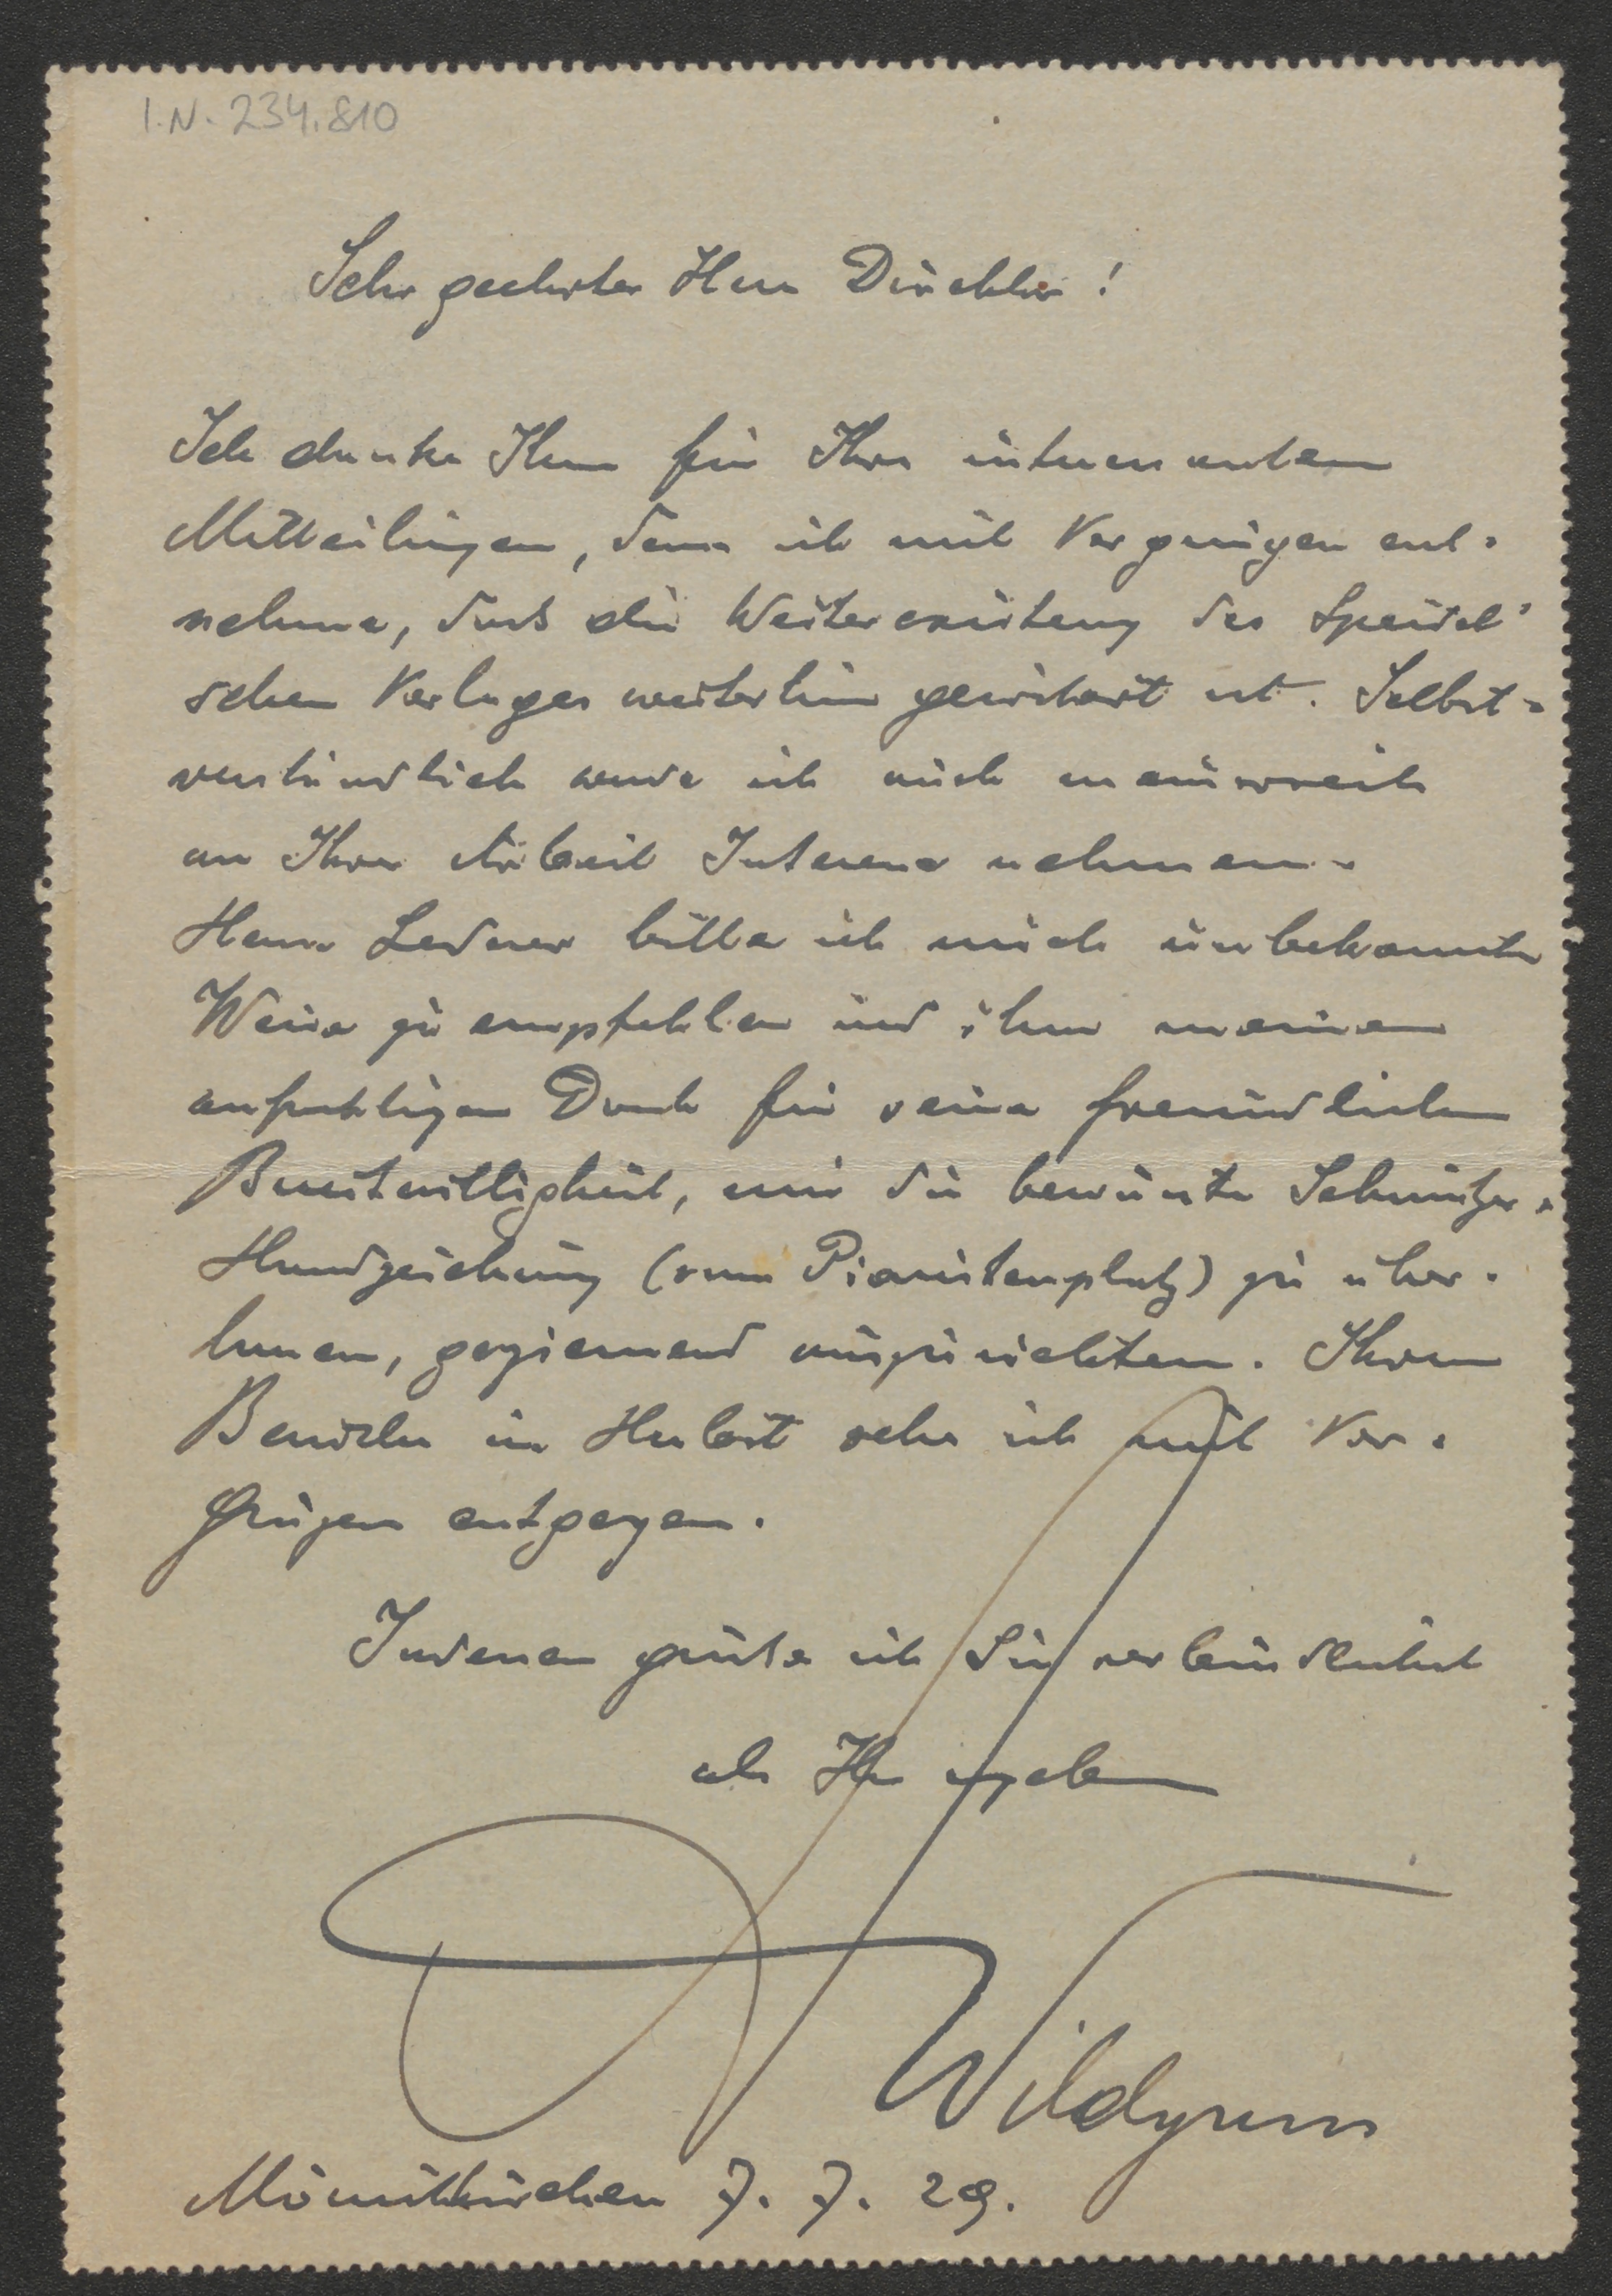 I.N. 234.810
Sehr geehrter Herr Direktor!
Ich danke Ihnen für Ihre interessanten
Mitteilungen, denen ich mit Vergnügen ent-
nehme, dass die Weiterexistenz des Speidel'
schen Verlages weiterhin gesichert ist. Selbst-
verständlich werde ich auch meinerseits
an Ihrer Arbeit Interesse nehmen.
Herrn Lederer bitte ich mich unbekannter
Weise zu empfehlen und ihm meinen
aufrichtigen Dank für seine freundliche
Bereitwilligkeit, mir die bewusste
Handzeichnung (vom Piaristenplatz) zu über-
lassen, geziemend auszurichten. Ihrem
Besuche im Herbst sehe ich mit Ver-
gnügen entgegen.
Indessen grüsse ich Sie verbindlichst
als Ihr ergebener
Wildgans
Mönichkirchen 7. 7. 29.